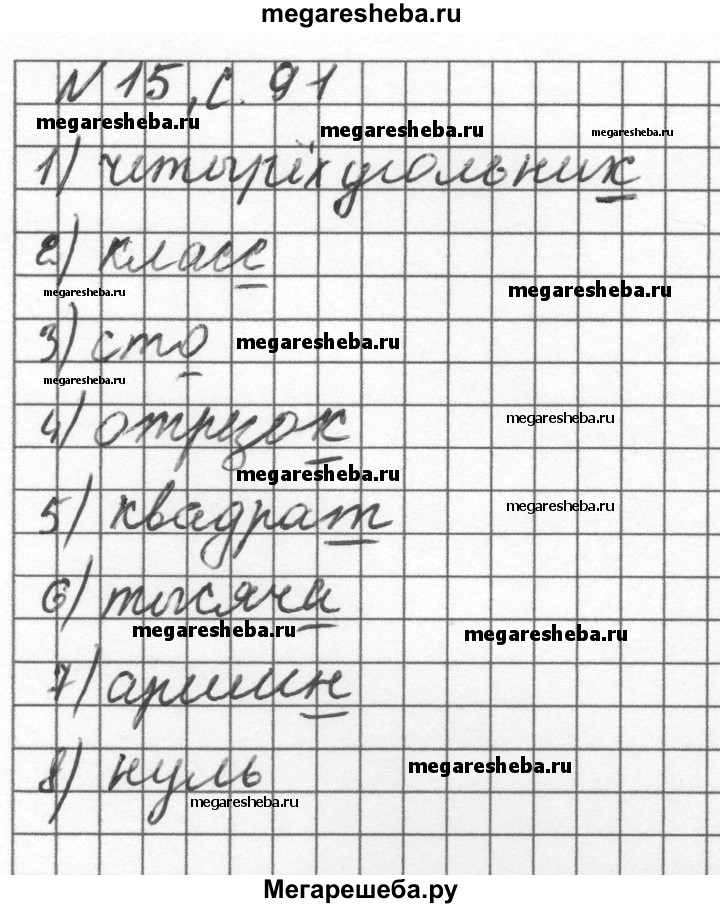 megaresheba.ru
№ 15, с. 91
megaresheba.ru megaresheba.ru megaresheba.ru
1) четырёхугольник
2) класс
megaresheba.ru megaresheba.ru
3) сто megaresheba.ru
megaresheba.ru
4) отрезок megaresheba.ru
megaresheba.ru
5) квадрат megaresheba.ru
6) тысяча
megaresheba.ru megaresheba.ru
7) аршин
8) нуль megaresheba.ru
megaresheba.ru
Мегарешеба.ру